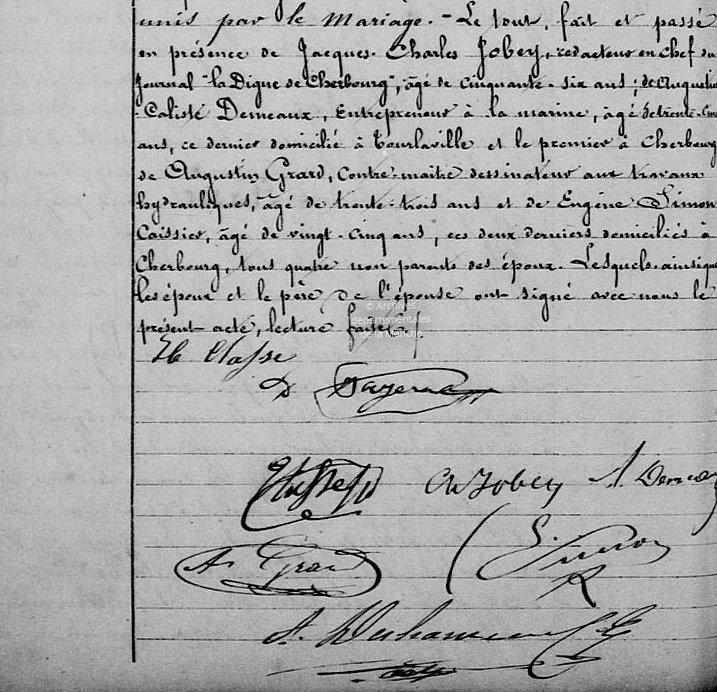 unis par le Mariage. - Le tout, fait et passé
en présence de Jacques-Charles Jobey, rédacteur en chef du
Journal "la Digue de Cherbourg", âgé de cinquante-six ans; de Augustin
Caliste Demeaux, Entrepreneur à la marine, âgé de trente-cinq
ans, ce dernier domicilié à Tourlaville et le premier à Cherbourg
de Augustin Grard, Contre-maître dessinateur aux travaux
hydrauliques, âgé de trente-trois ans et de Eugène Simon
Caissier, âgé de vingt-cinq ans, ces deux derniers domiciliés à
Cherbourg, tous quatre non parents des époux. Lesquels, ainsi que
les époux et le père de l'épouse ont signé avec nous le
présent acte, lecture faite.
© Archives
départementales
de la Manche
Ch Jobey A. Demeaux
A. Grard E. Simon